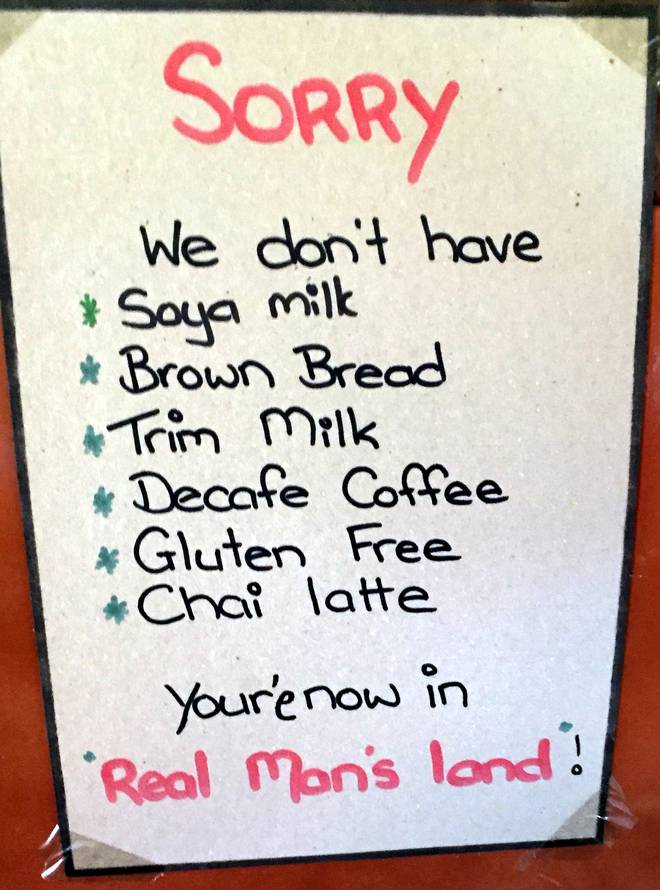 SORRY
We don't have
* Soya milk
* Brown Bread
* Trim Milk
* Decafe Coffee
* Gluten Free
* Chai latte
Your'e now in
"Real Man's land"!